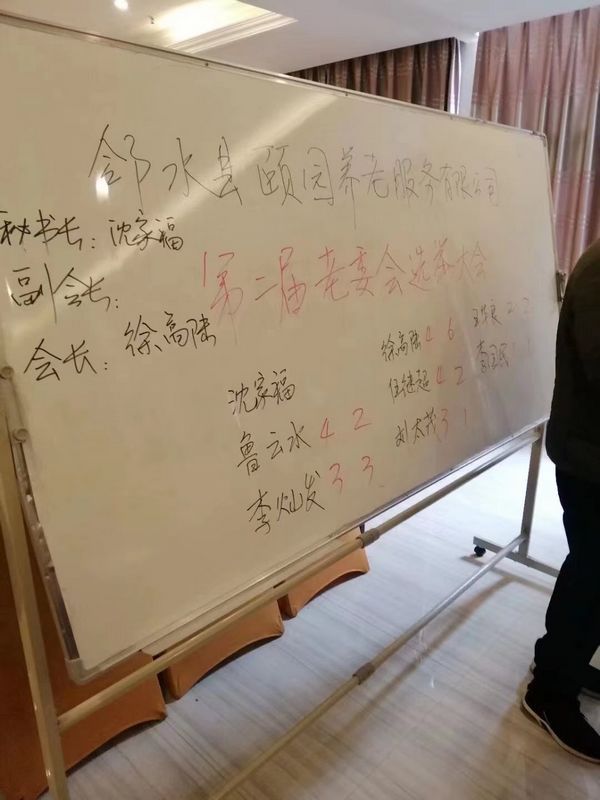 邻水县颐园养老服务有限公司
第二届老委会选举大会
秘书长：沈家福
副会长：
会长：徐高陆
沈家福
鲁云水 4 2
李灿发 3 3
徐高陆 4 6
任继超 4 2
刘太茂 3 1
2 2
李国民 1 1